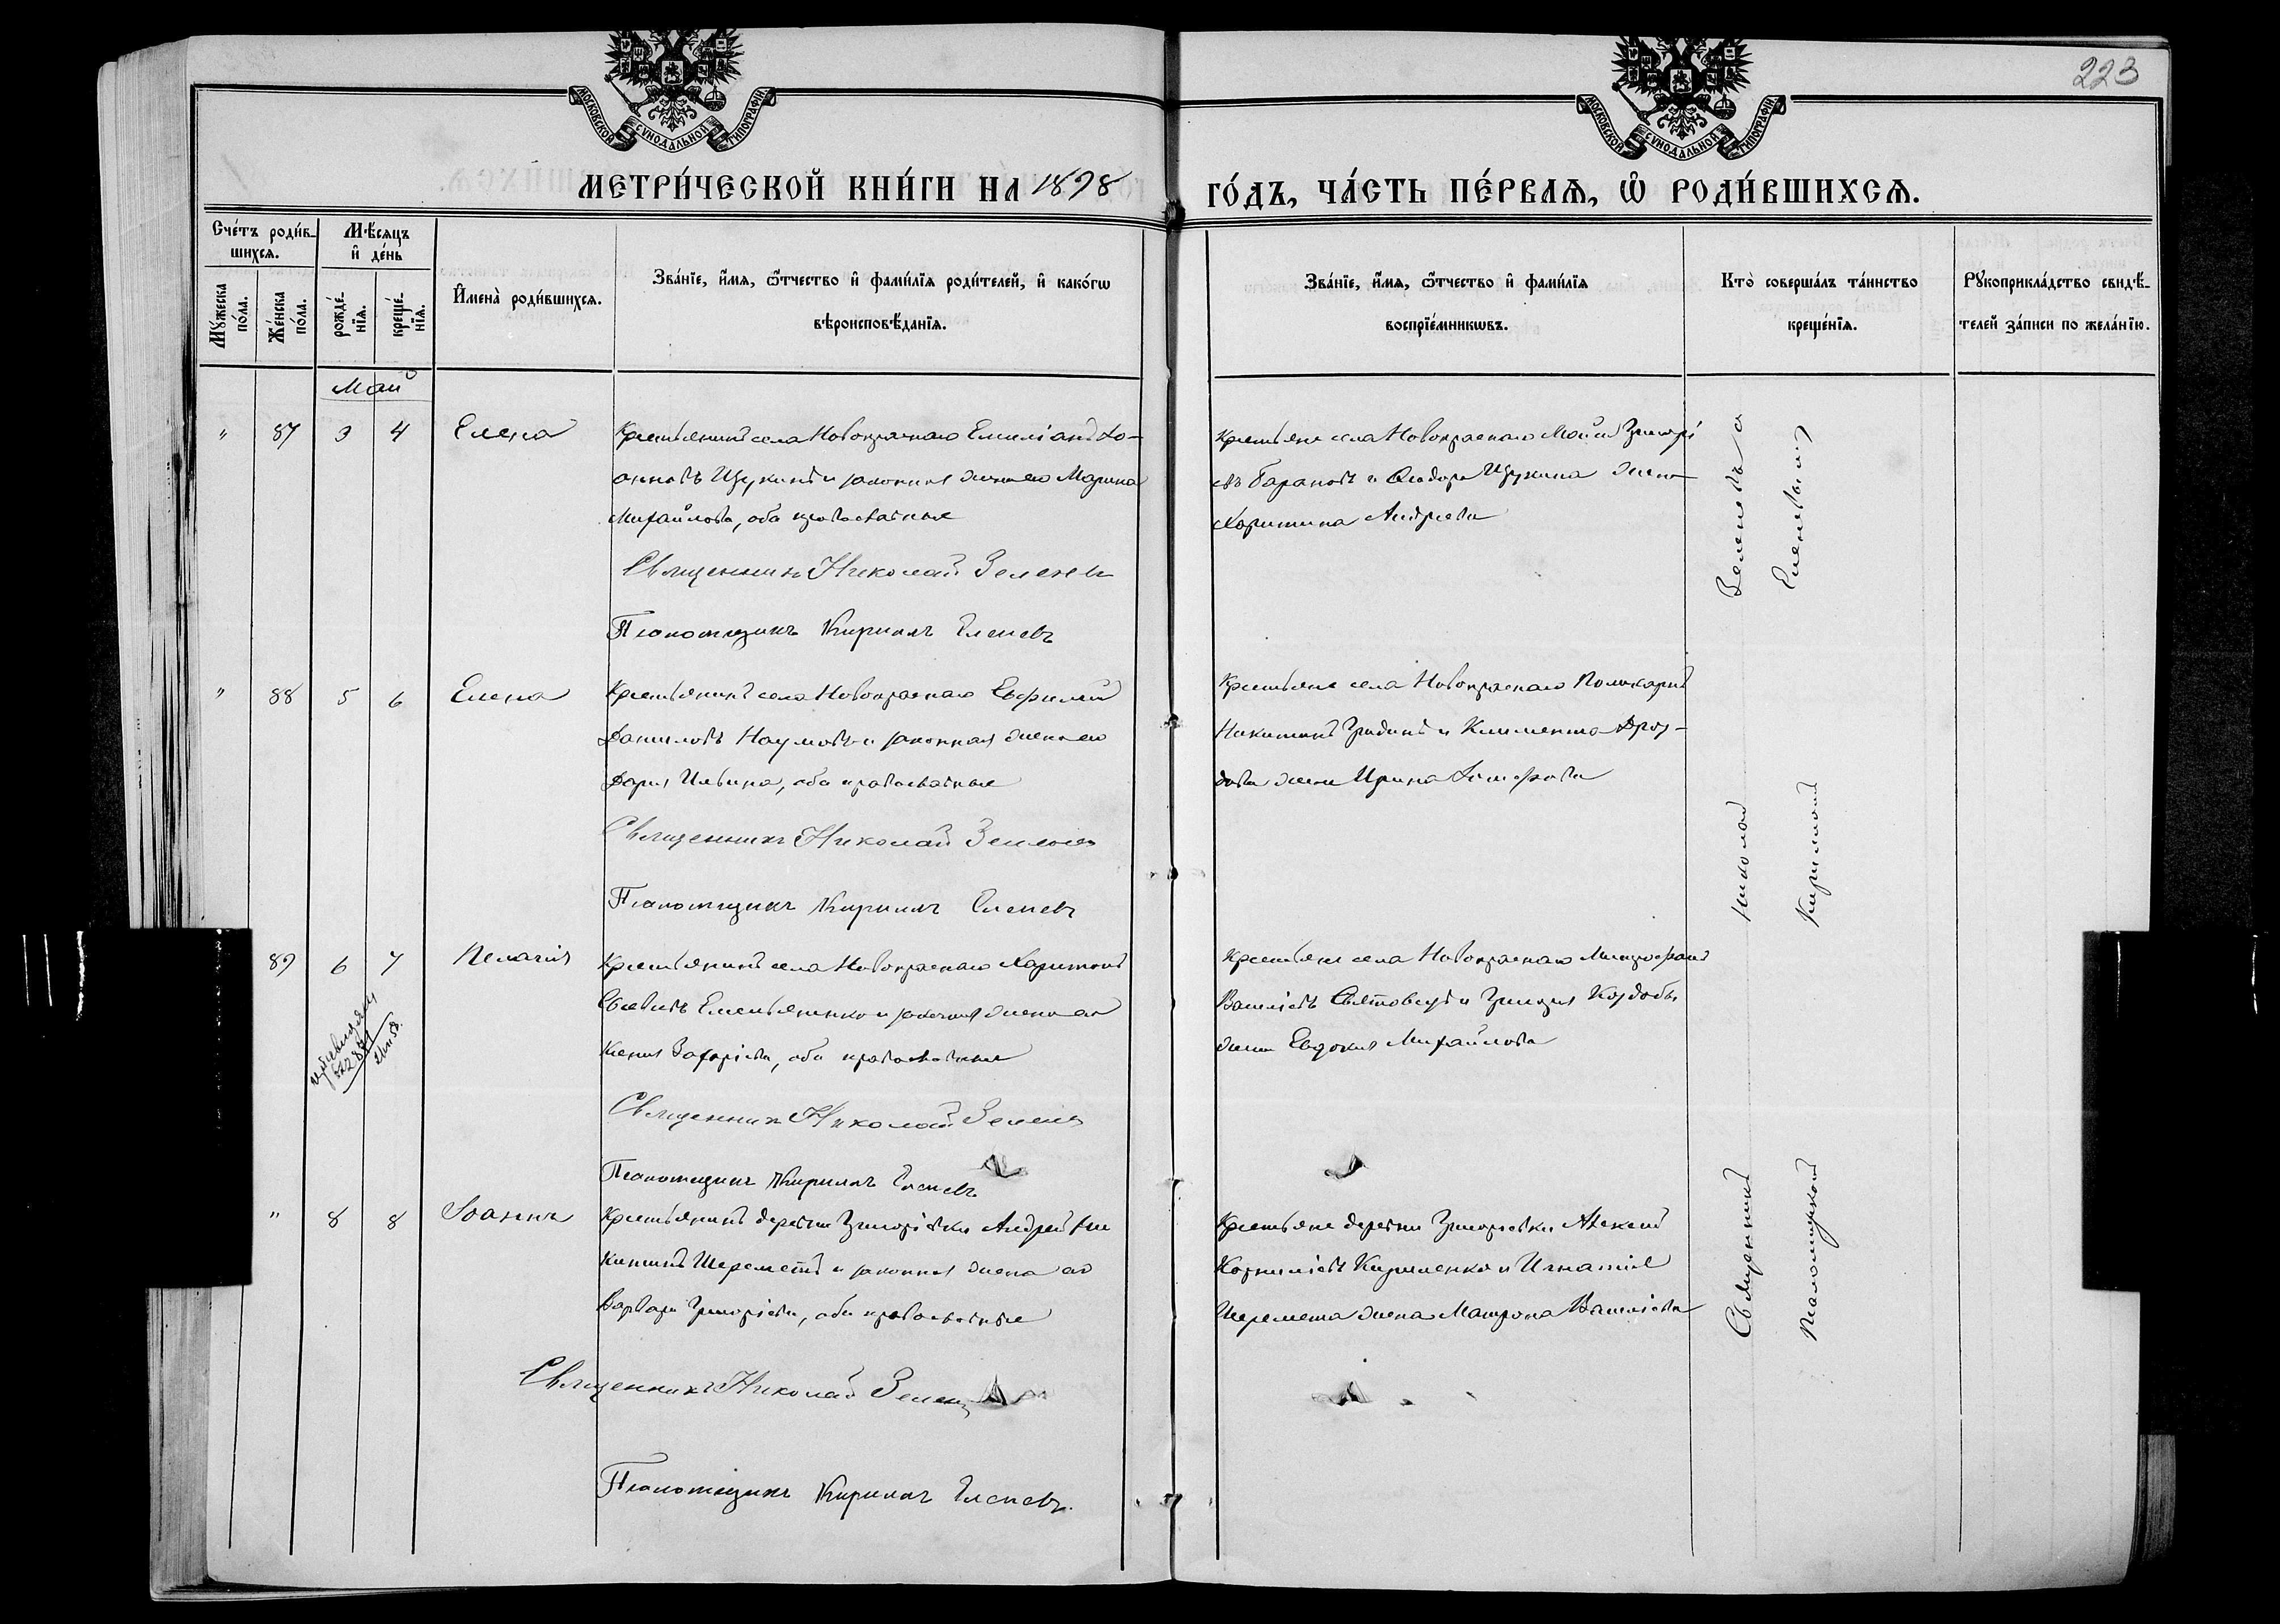 223
МОСКОВСКОЙ СѴНОДАЛЬНОЙ ТИПОГРАФІИ
МОСКОВСКОЙ СѴНОДАЛЬНОЙ ТИПОГРАФІИ
МЕТРИ́ЧЕСКОЙ КНИ́ГИ НА 1898 ГО́ДЪ, ЧА́СТЬ ПЕ́РВАѦ, Ѽ РОДИ́ВШИХСѦ.
Сче́тъ роди́в-
шихсѧ.
Мꙋ́жеска по́ла.
Же́нска по́ла.
Мѣ́сѧцъ и҆ де́нь
рожде́-
нїѧ.
креще́-
нїѧ.
И҆мена̀ роди́вшихсѧ.
Зва́нїе, и҆́мѧ, ѻ҆́тчество и҆ фами́лїѧ роди́телей, и҆ како́гѡ
вѣроисповѣ́данїѧ.
Зва́нїе, и҆́мѧ, ѻ҆́тчество и҆ фами́лїѧ
воспрїе́мникѡвъ.
Кто̀ соверша́лъ та́инство
креще́нїѧ.
Рꙋкоприкла́дство свидѣ́-
телей за́писи по жела́нїю.
Май
" 87 3 4 Елена
Крестьянинъ села Новокраснаго Емиліанъ Іо-
анновъ Щукинъ и законная жена его Марина
Михайлова, оба православные
Священникъ Николай Зеленевъ
Псаломщикъ Кириллъ Еленевъ
Крестьяне села Новокраснаго Григорі
евъ Барановъ и Ѳеодора Щукина жена
Харитина Андреева
" 88 5 6 Елена
Крестьянинъ села Новокраснаго Евфимій
Даниловъ Наумовъ и законная жена его
Дарія Ильина, оба православные
Священникъ Николай Зеленевъ
Псаломщикъ Кириллъ Еленевъ
Крестьяне села Новокраснаго Поликарпъ
Никитинъ Гридинъ и Климента Дроз-
дова жена Ирина
89 6 7 Пелагія
Крестьянинъ села Новокраснаго Харитонъ
Емельяненко и законная жена его
Ксенія Захаріева, оба православные
Священникъ Николай Зеленевъ
Псаломщикъ Кириллъ Еленевъ
Крестьяне села Новокраснаго Митрофанъ
Василіевъ и Григорія Коздобы
жена Евдокія Михайлова
" 8 8 Іоаннъ
Крестьянинъ деревни Григоріевки Андрей Ни
китинъ Шереметъ и законная жена его
Варвара Григоріева, оба православные
Священникъ Николай Зеленевъ
Псаломщикъ Кириллъ Еленевъ.
Крестьяне деревни Григорьевки Алексій
Корниліевъ Кириленко и Игнатія
Шеремета жена Матрона Василіева
Священникъ Николай Зеленевъ и
Псаломщикъ Кириллъ Еленевъ